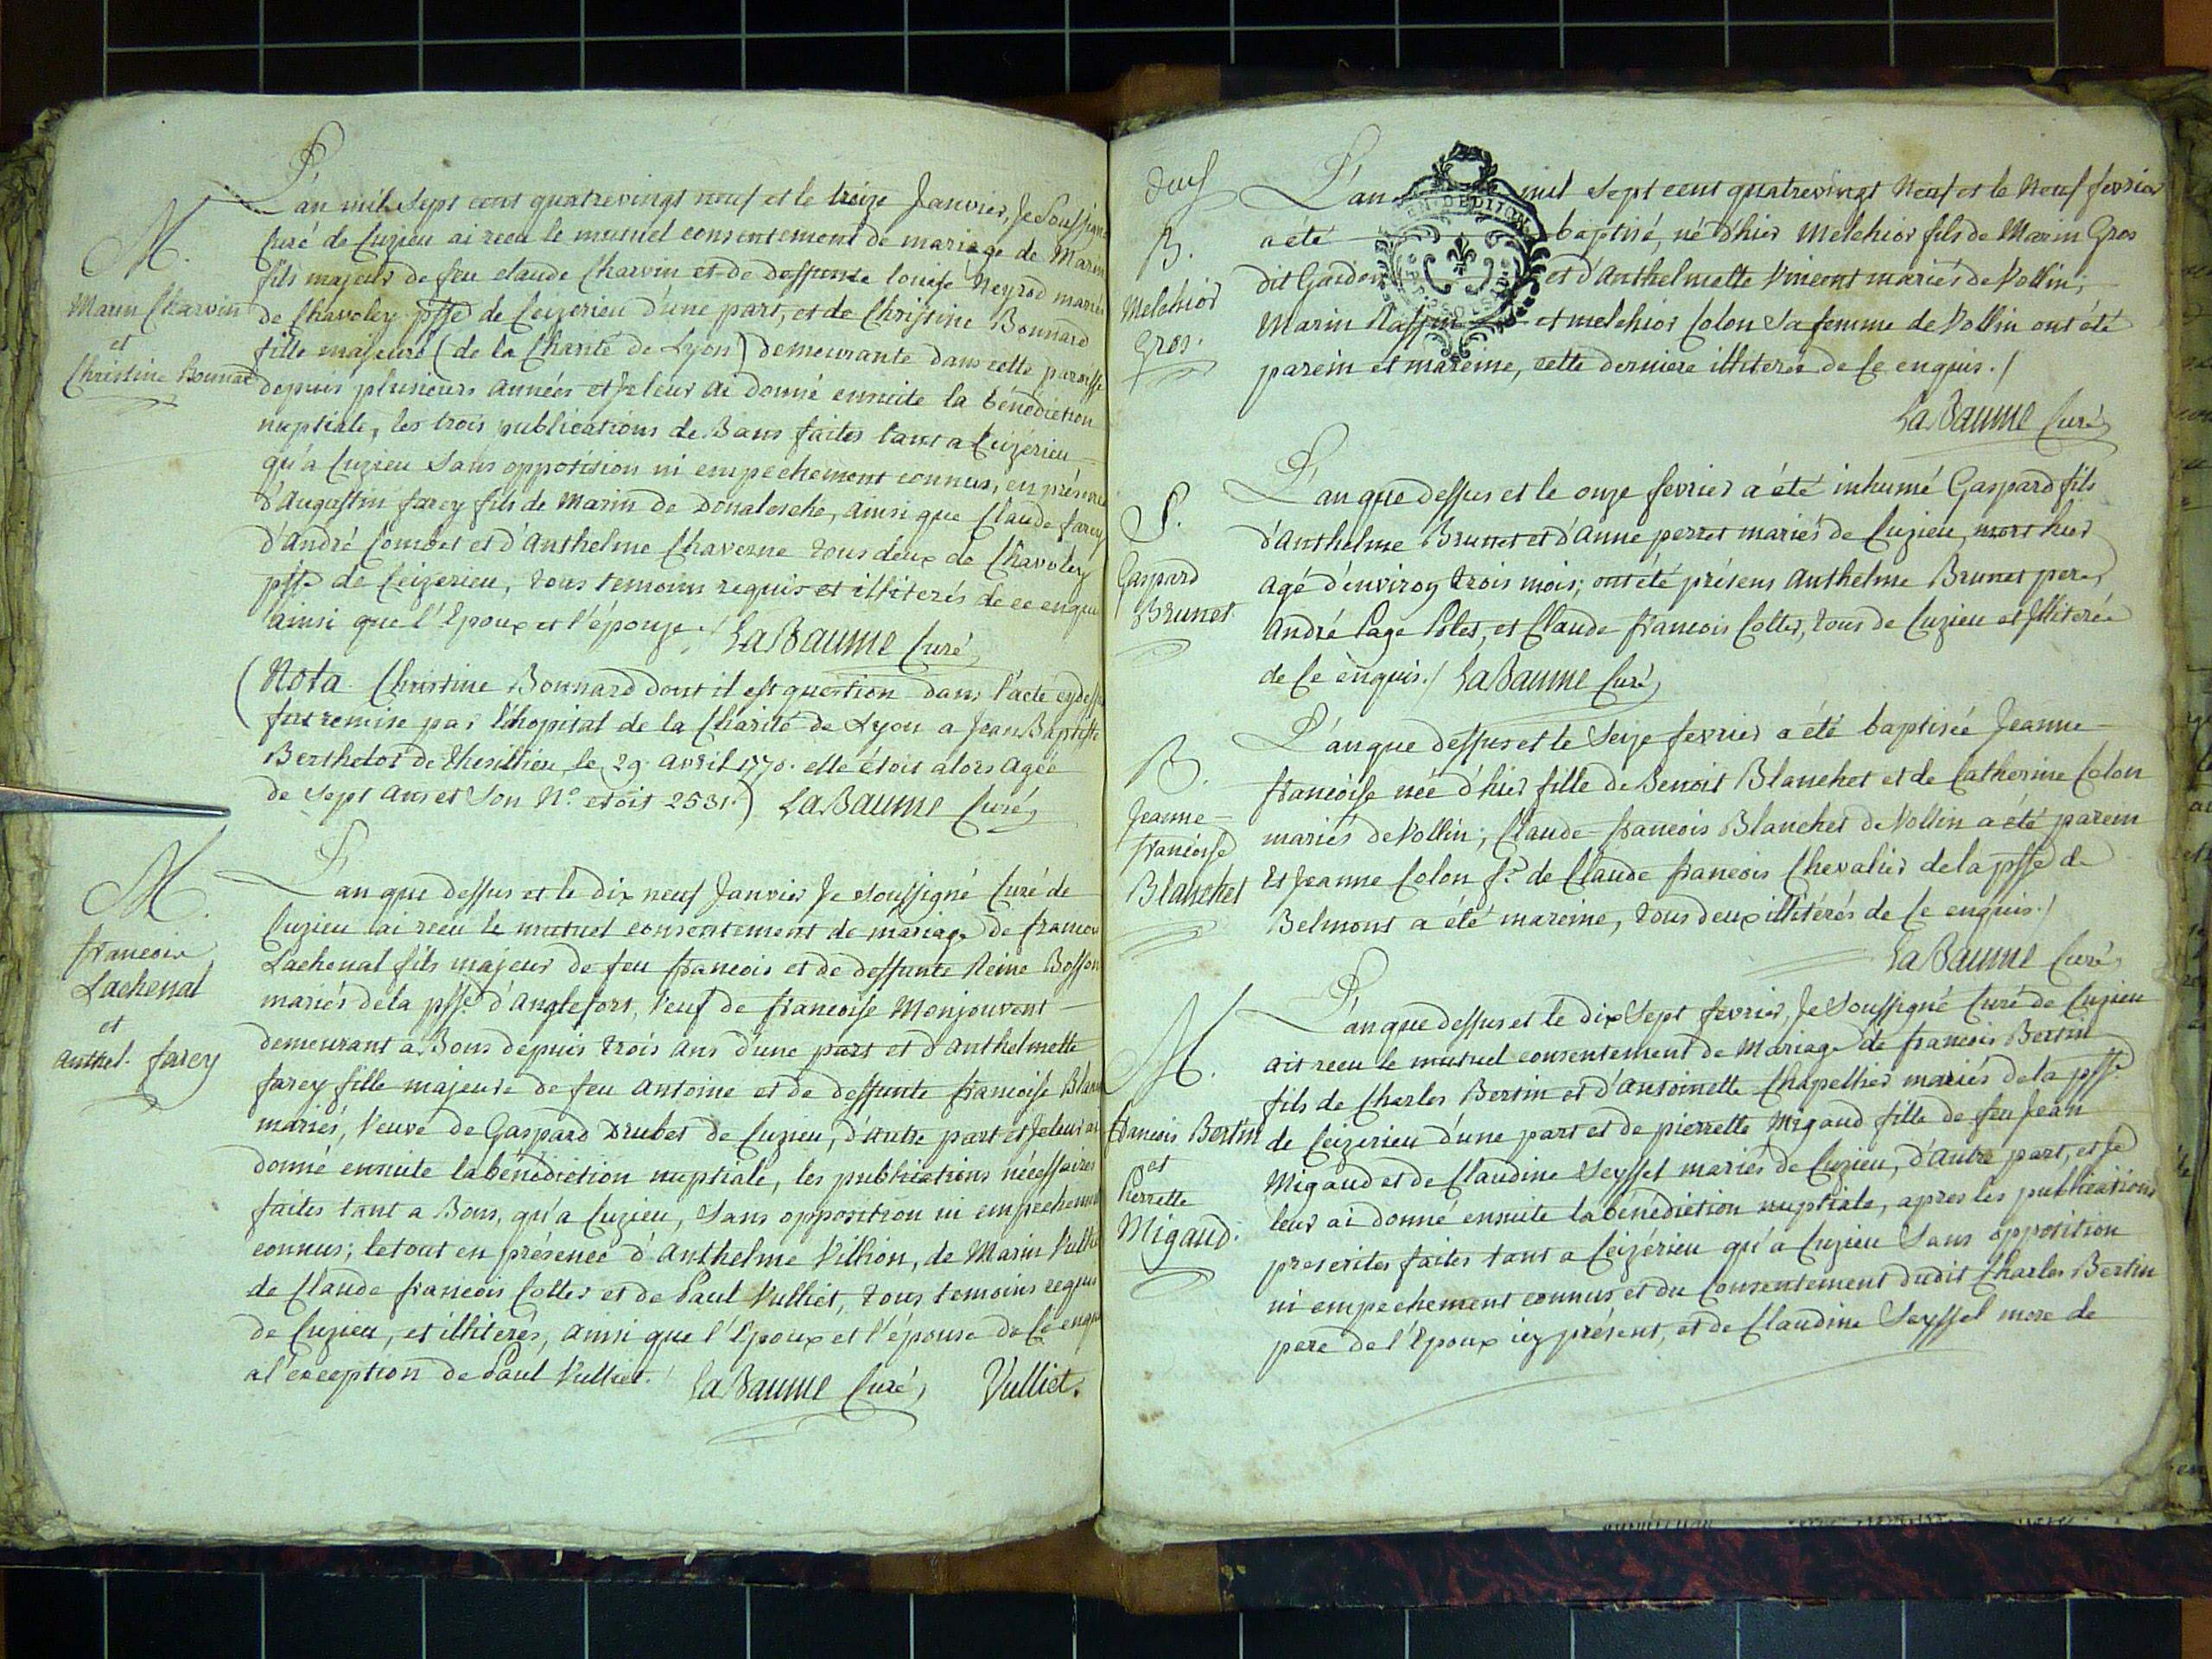 M.
Marin Charvin
et
Christine Bonnard
L'an mil sept cent quatrevingt neuf et le treize Janvier, Je Soussigné
Curé de Cuzieu ai reçu le mutuel consentement de mariage de Marin
fils majeur de feu claude Charvin et de deffunte louise Neyrod mariés
de Chavoley psse de Ceizerieu d'une part, et de Christine Bonnard
fille majeure (de la Charité de Lyon) demeurante dans cette paroisse
depuis plusieurs années et je leur ai donné ensuite la bénédiction
nuptiale, les trois publications de Bans faites tant a Ceizérieu
qu'a Cuzieu Sans opposition ni empechement connus, en présence
d'Augustin farey fils de Marin de Donalesche, ainsi que Claude farey
d'André Combet et d'Anthelme Chaverne tous deux de Chavoley
psse de Ceizerieu, tous temoins requis et illiterés de ce enquis
ainsi que l'Epoux et l'épouze./ LaBaume Curé
(Nota. Christine Bonnard dont il est question dans l'acte cydessus
fut remise par l'hopital de la Charité de Lyon a Jean Baptiste
Berthelot de Thesillieu, le 29. avril 1770. elle étoit alors agée
de sept ans et Son N.º etoit 2531.) LaBaume Curé
M.
francois
Lachenal
et
Anthel. farey
L'an que dessus et le dix neuf Janvier Je soussigné Curé de
Cuzieu ai reçu le mutuel consentement de mariage de francois
Lachenal fils majeur de feu francois et de deffunte Reine Bosson
mariés de la psse d'Anglefort, Veuf de francoise Monjouvent
demeurant a Bons depuis trois ans d'une part et d'Anthelmette
farey fille majeure de feu Antoine et de deffunte francoise
mariés, Veuve de Gaspard Drubet de Cuzieu, d'autre part et Je leur ai
donné ensuite la bénédiction nuptiale, les publications nécessaires
faites tant a Bons, qu'a Cuzieu, Sans opposition ni empechement
connus; le tout en présence d'Anthelme Villion, de Marin
de Claude francois Collet et de Paul Vulliet, tous temoins requis
de Cuzieu, et illiterés, ainsi que l'Epoux et l'épouse de Ce enquis
a l'exception de Paul Vulliet. LaBaume Curé, Vulliet.
B.
Melchior
Gros.
L'an mil sept cent quatrevingt Neuf et le Neuf fevrier
a été baptisé, né d'hier Melchior fils de Marin Gros
dit Gardon et d'Anthelmette Vincent mariés de Vollin,
Marin et melchior Colon Sa femme de Vollin ont été
parein et mareine, cette derniere illiterée de Ce enquis./
LaBaume Curé
S.
Gaspard
Brunet
L'an que dessus et le onze fevrier a été inhumé Gaspard fils
d'Anthelme Brunet et d'Anne perret mariés de Cuzieu, mort hier
agé d'environ trois mois; ont été présens Anthelme Brunet pere,
André Page, et Claude francois Collet, tous de Cuzieu et Illiterés
de Ce enquis./ LaBaume Curé
B.
Jeanne-
francoise
Blanchet
L'an que dessus et le Seize fevrier a été baptisée Jeanne-
francoise née d'hier fille de Benoit Blanchet et de Catherine Colon
mariés de Vollin; Claude-francois Blanchet de Vollin a été parein
Et Jeanne Colon fe. de Claude francois Chevalier de la psse de
Belmont a été mareine, tous deux illitérés de Ce enquis./
LaBaume Curé
M.
francois Bertin
et
Pierrette
Migaud.
L'an que dessus et le dix Sept fevrier, Je Soussigné Curé de Cuzieu
ait reçu le mutuel consentement de Mariage de francois Bertin
fils de Charles Bertin et d'Antoinette Chapellier mariés de la psse
de Ceizerieu d'une part et de pierrette Migaud fille de feu Jean
Migaud et de Claudine Seyssel mariés de Cuzieu, d'autre part, et Je
leur ai donné ensuite la bénédiction nuptiale, apres les publications
prescrites faites tant a Ceizérieu qu'a Cuzieu Sans opposition
ni empechement connus et du Consentement dudit Charles Bertin
pere de l'Epoux icy présent, et de Claudine Seyssel mere de